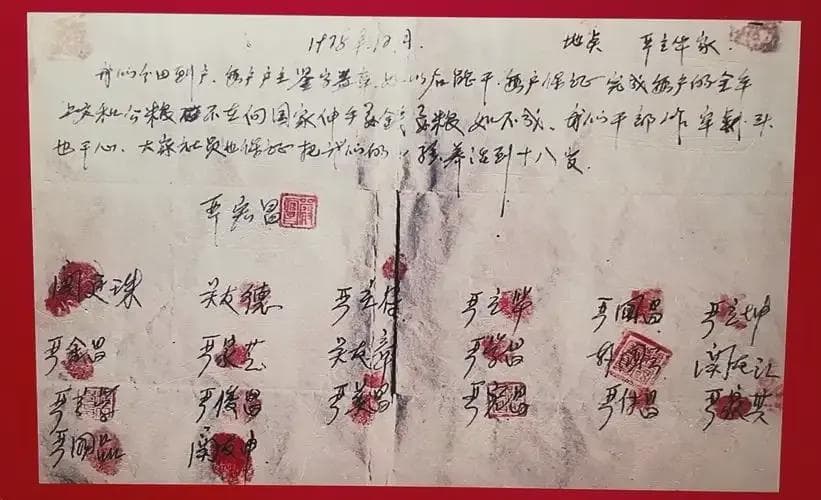 1978年12月 地点 严立华家
我们分田到户,每户户主签字盖章,如以后能干,每户保证完成每户的全年
上交和公粮,不在向国家伸手要钱要粮,如不成,我们干部作牢剎头
也干心,大家社员也保证把我们的小孩养活到十八岁。
严宏昌
关廷珠 关友德 严立付 严立华 严国昌 严立坤
严金昌 严家芝 关友章 严学昌 韩国云 关友江
严美昌 严俊昌 严美昌 严宏昌 严付昌 严家其
严国品 关友申